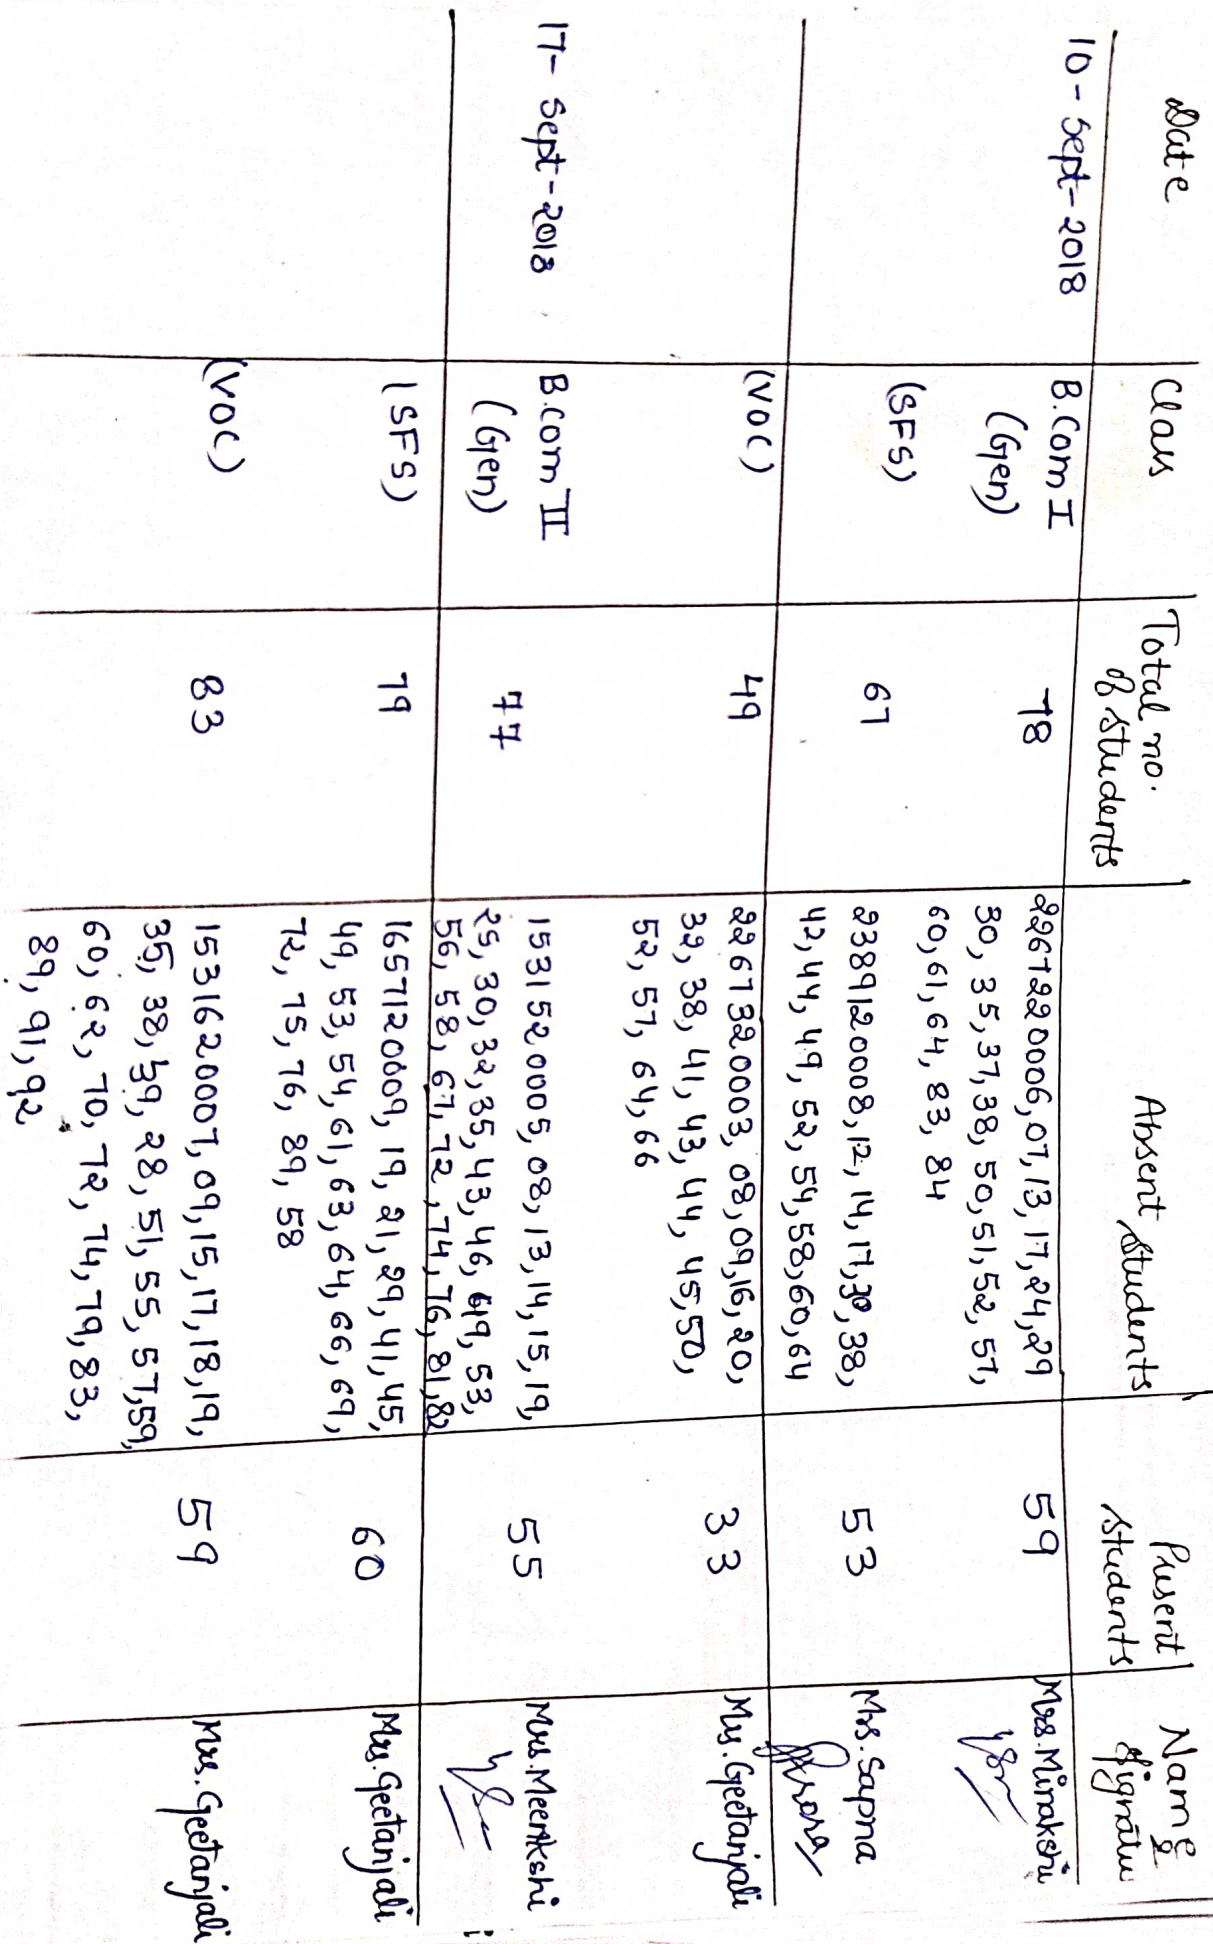 Date Class Total no. of students Absent students Present students Name & Signatu
10-Sept-2018 B.Com I (Gen) 78 226722 0006, 07, 13, 17, 24, 29
30, 35, 37, 38, 50, 51, 52, 57,
60, 61, 64, 83, 84 59 Mrs. Minakshi
(SFS) 67 238912 0008, 12, 14, 17, 30, 38,
42, 44, 49, 52, 54, 58, 60, 64 53 Mrs. Sapna
(VOC) 49 226732 0003, 08, 09, 16, 20,
32, 38, 41, 43, 44, 45, 50,
52, 57, 64, 66 33 Mrs. Geetanjali
17-Sept-2018 B.Com II (Gen) 77 153152 0005, 08, 13, 14, 15, 19,
25, 30, 32, 35, 43, 46, 49, 53,
56, 58, 67, 72, 74, 76, 81, 82 55 Mrs. Meenkshi
(SFS) 79 165712 0009, 19, 21, 29, 41, 45,
49, 53, 54, 61, 63, 64, 66, 69,
72, 75, 76, 89, 58 60 Mrs. Geetanjali
(VOC) 83 153162 0007, 09, 15, 17, 18, 19,
35, 38, 39, 28, 51, 55, 57, 59,
60, 62, 70, 72, 74, 79, 83,
89, 91, 92 59 Mrs. Geetanjali